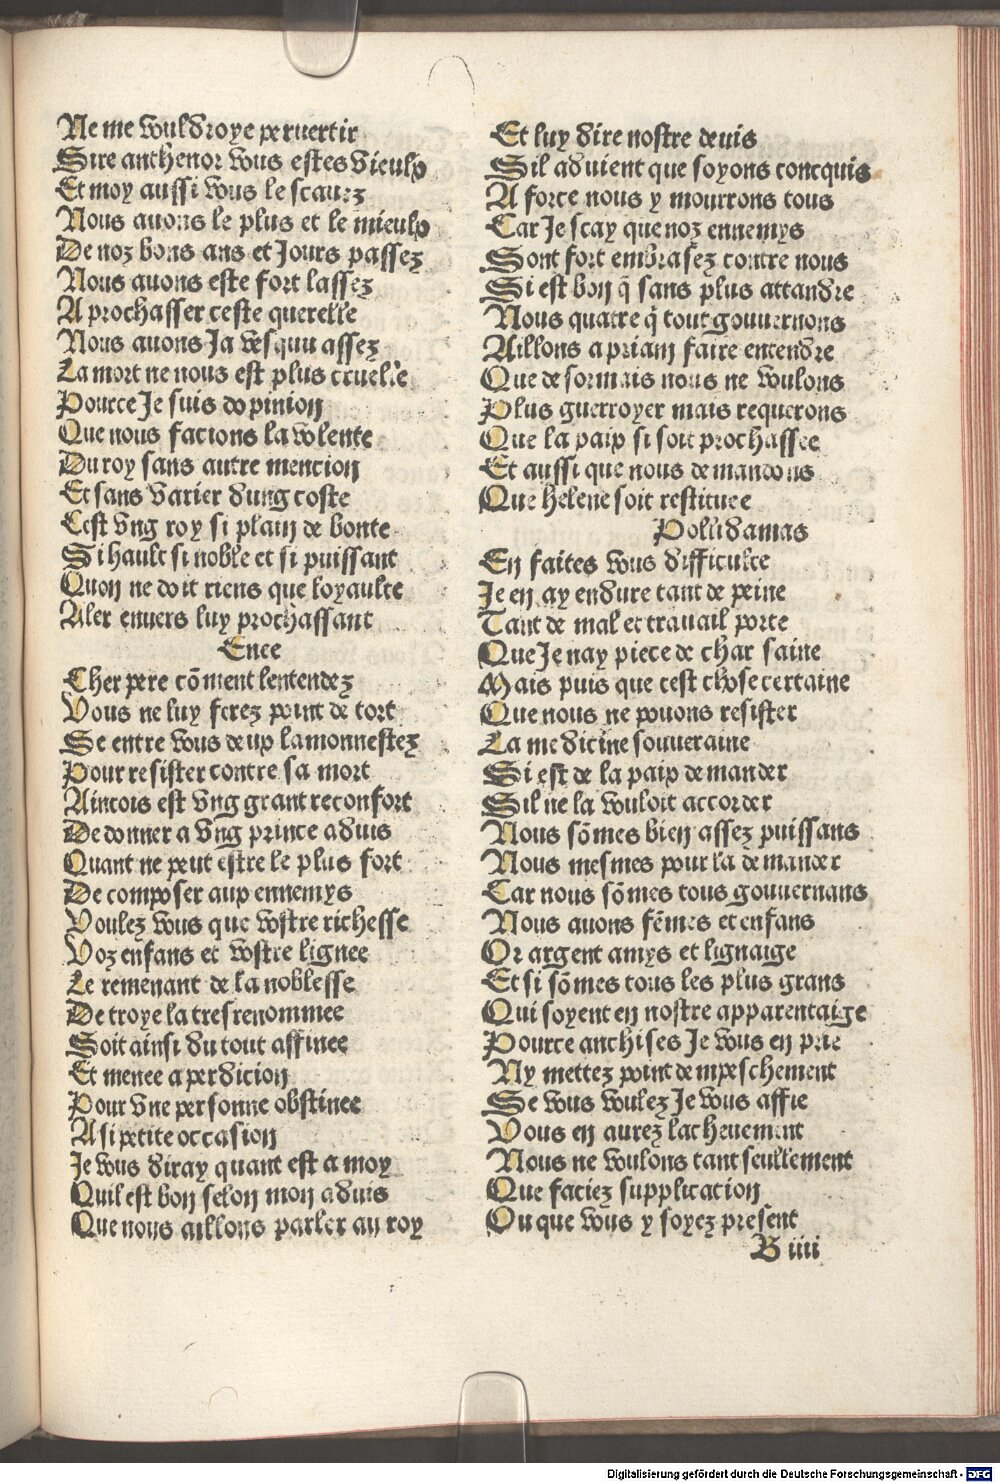 Ne me vouldroye peruertir
Sire anthenor vous estes vieulx
Et moy aussi vous le scauez
Nous auons le plus et le mieulx
De noz bons ans et Jours passez
Nous auons este fort lassez
A prochasser ceste querelle
Nous auons Ja vesquu assez
La mort ne nous est plus cruelle
Pource Je suis dopinion
Que nous facions la volente
Du roy sans autre mencion
Et sans varier dung coste
Cest vng roy si plain de bonte
Si hault si noble et si puissant
Quon ne doit riens que loyaulte
Aler enuers luy prochassant
Enee
Cher pere cōment lentendez
Vous ne luy ferez point de tort
Se entre vous deux lamonnestez
Pour resister contre sa mort
Aincois est vng grant reconfort
De donner a vng prince aduis
Quant ne peut estre le plus fort
De composer aux ennemys
Voulez vous que vostre richesse
Voz enfans et vostre lignee
Le remenant de la noblesse
De troye la tresrenommee
Soit ainsi du tout affinee
Et menee a perdicion
Pour vne personne obstinee
A si petite occasion
Je vous diray quant est a moy
Quil est bon selon mon aduis
Que nous aillons parler au roy
Et luy dire nostre deuis
Sil aduient que soyons concquis
A force nous y mourrons tous
Car Je scay que noz ennemys
Sont fort embrasez contre nous
Si est bon q̄ sans plus attandre
Nous quatre q̄ tout gouuernons
Aillons a priam faire entendre
Que desormais nous ne voulons
Plus guerroyer mais requerons
Que la paix si soit prochassee
Et aussi que nous demandons
Que helene soit restituee
Polidamas
En faites vous difficulte
Je en ay endure tant de peine
Tant de mal et trauail porte
Que Je nay piece de char saine
Mais puis que cest chose certaine
Que nous ne pouons resister
La medicine souueraine
Si est de la paix demander
Sil ne la vouloit accorder
Nous sōmes bien assez puissans
Nous mesmes pour la demander
Car nous sōmes tous gouuernans
Nous auons fēmes et enfans
Or argent amys et lignaige
Et si sōmes tous les plus grans
Qui soyent en nostre apparentaige
Pource anchises Je vous en prie
Ny mettez point dempeschement
Se vous voulez Je vous affie
Vous en aurez lacheuement
Nous ne voulons tant seullement
Que faciez supplication
Ou que vous y soyez present
B iiii
Digitalisierung gefördert durch die Deutsche Forschungsgemeinschaft - DFG